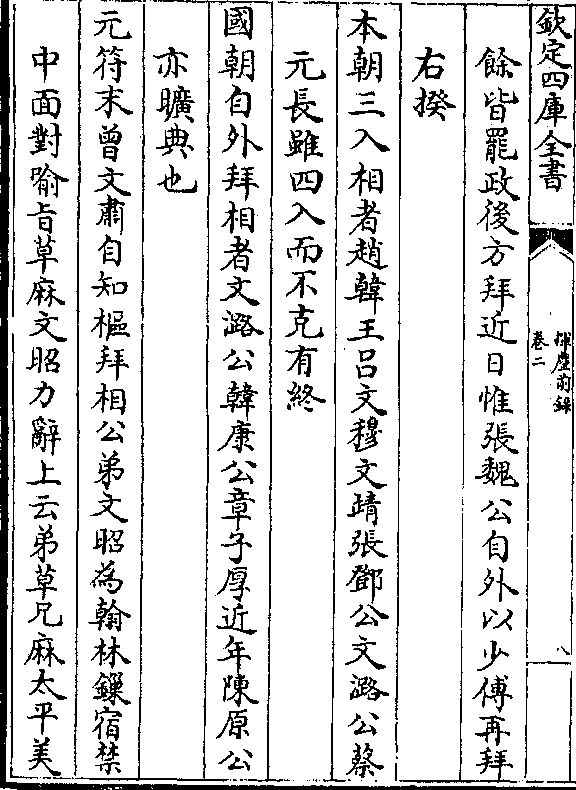 欽定四庫全書
揮麈前錄
卷二
八
餘皆罷政後方拜近日惟張魏公自外以少傅再拜
右揆
本朝三入相者趙韓王吕文穆文靖張鄧公文潞公蔡
元長雖四入而不克有終
國朝自外拜相者文潞公韓康公章子厚近年陳原公
亦曠典也
元符末曾文肅自知樞拜相公弟文昭為翰林鏁宿禁
中面對喻旨草麻文昭力辭上云弟草兄麻太平美